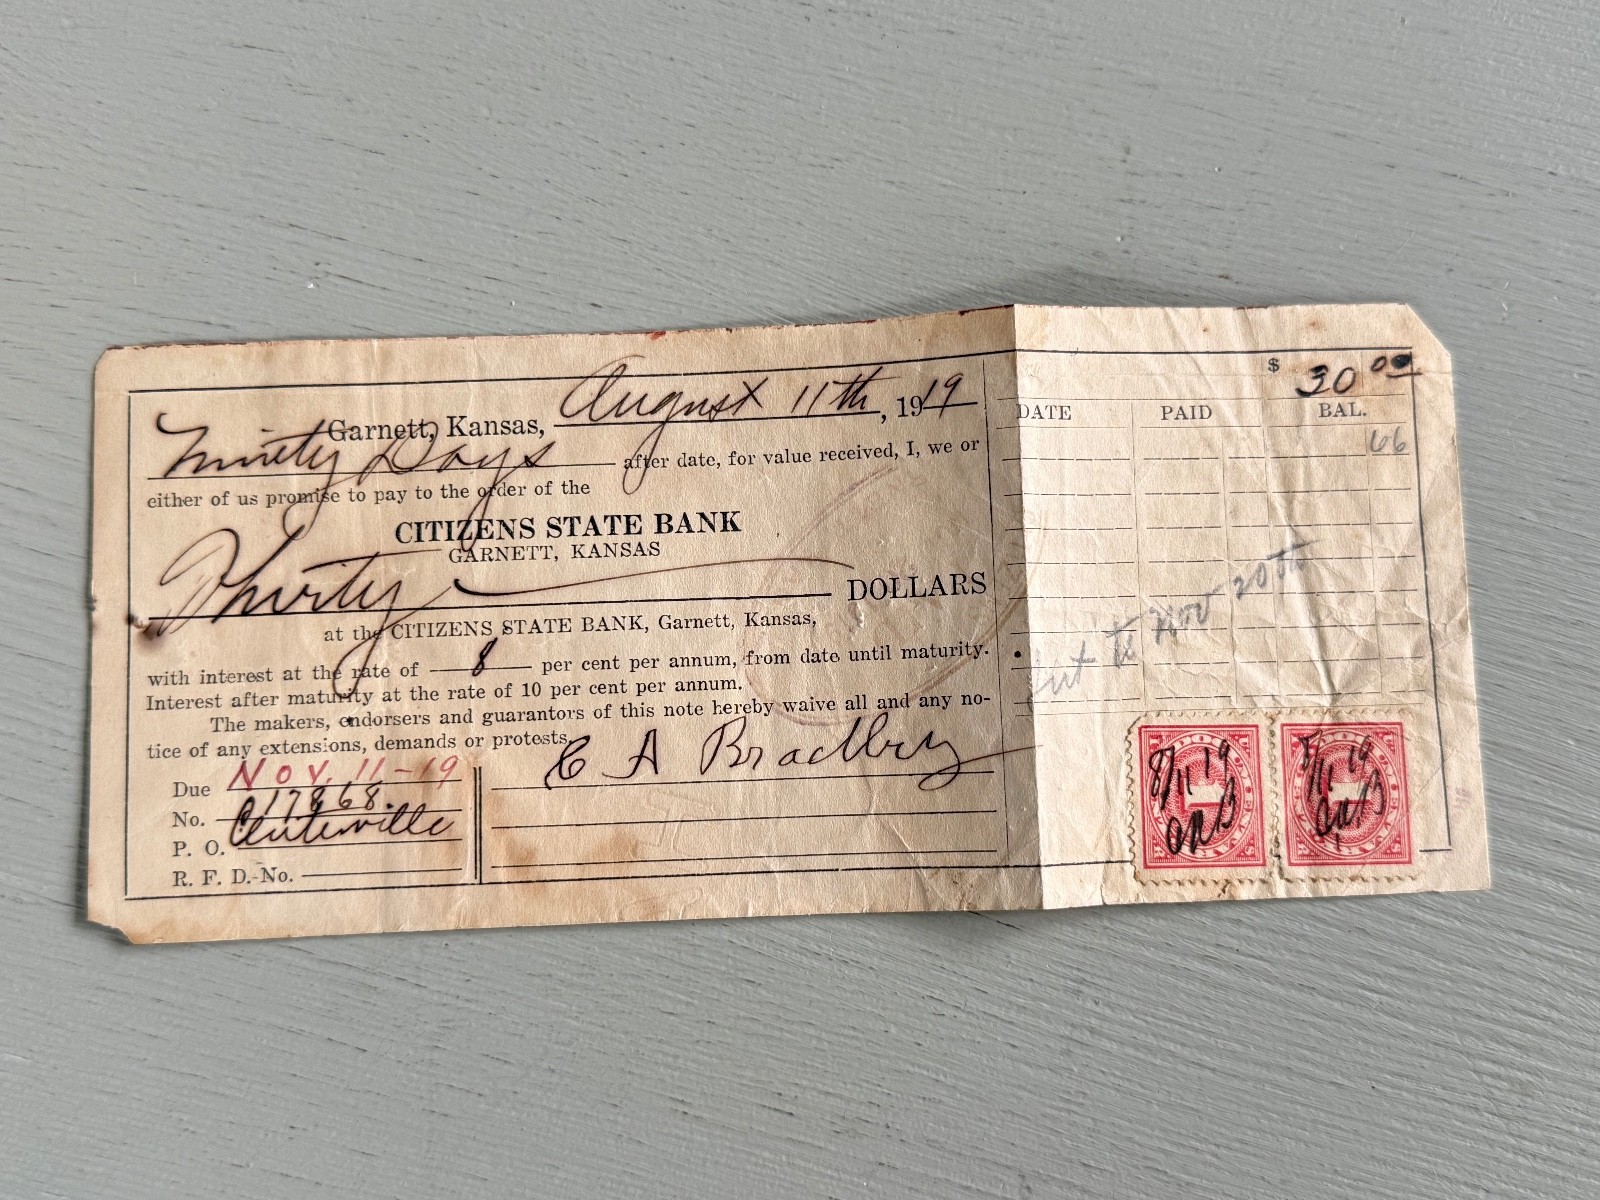 Garnett, Kansas, August 11th, 1919
Ninety Days after date, for value received, I, we or
either of us promise to pay to the order of the
CITIZENS STATE BANK
GARNETT, KANSAS
Thirty DOLLARS
at the CITIZENS STATE BANK, Garnett, Kansas,
with interest at the rate of 8 per cent per annum, from date until maturity.
Interest after maturity at the rate of 10 per cent per annum.
The makers, endorsers and guarantors of this note hereby waive all and any no-
tice of any extensions, demands or protests.
C A Bradbury
Due Nov. 11-19
No. 17868.
P. O. Centerville
R. F. D. No.
$ 30 00
DATE PAID BAL.
66
Int to Nov 20th
8/11 19
CAB
8/11 19
CAB